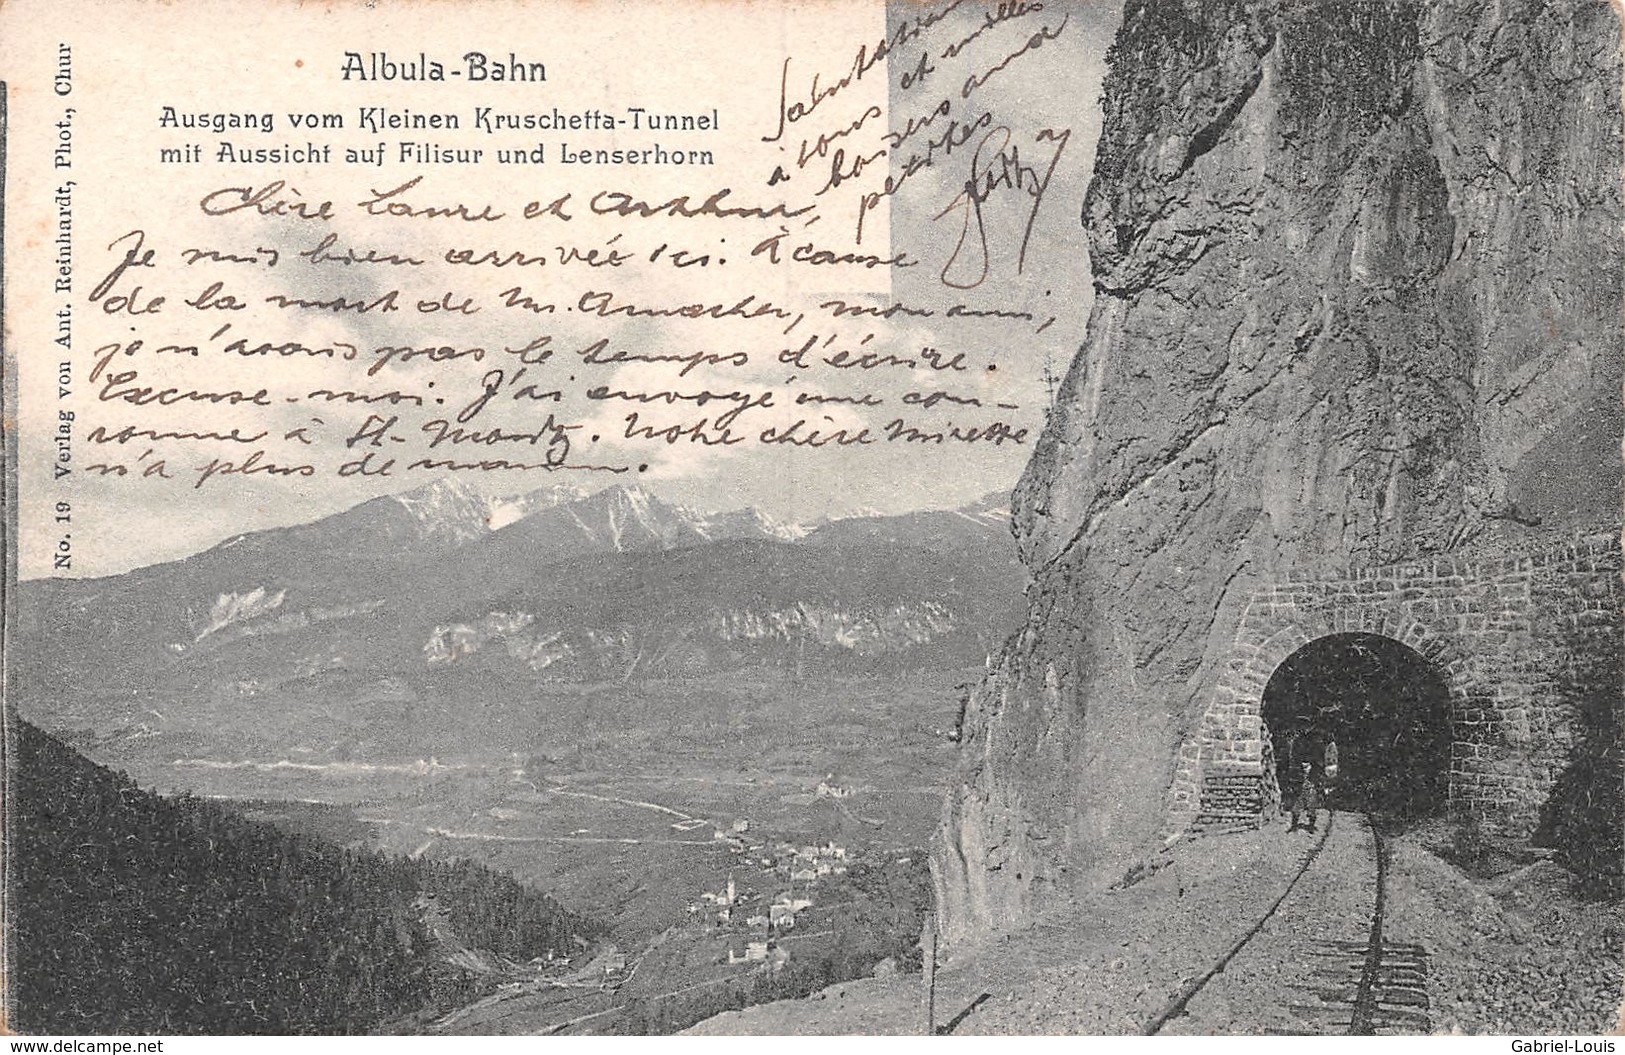 Albula-Bahn
Ausgang vom Kleinen Kruschetta-Tunnel
mit Aussicht auf Filisur und Lenserhorn
No. 19 Verlag von Ant. Reinhardt, Phot., Chur
Chère Laure et Arthur,
Je suis bien arrivée ici. À cause
de la mort de Mr. Amacher, mon ami,
je n'avais pas le temps d'écrire.
Excuse-moi. J'ai envoyé une cou-
ronne à St-Moritz. Notre chère Mirette
n'a plus de maman.
Salutations
à tous et milles
baisers aux
petites
www.delcampe.net
Gabriel-Louis